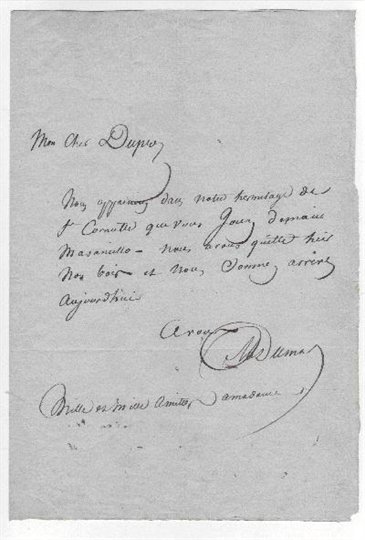 Mon Cher Duprez
Nous apprenons dans notre hermitage de
St Corneille que vous Jouez demain
Masaniello - nous avons quitté hier
Nos bois et nous Sommes arrivé
Aujourd'hui
A vous
Al Dumas
Mille et mille Amitiés a madame